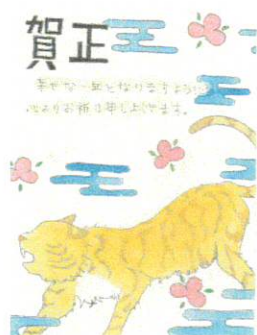 賀正
幸せな一年となりますよう
心よりお祈り申し上げます。